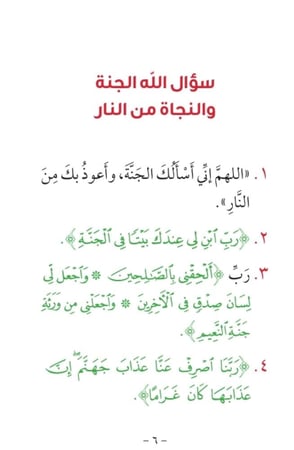 سؤال الله الجنة
والنجاة من النار
١. «اللهمَّ إنِّي أَسْأَلُكَ الجَنَّةَ، وأَعوذُ بكَ مِنَ
النَّارِ».
٢. ﴿رَبِّ ٱبْنِ لِى عِندَكَ بَيْتًا فِى ٱلْجَنَّةِ﴾.
٣. رَبِّ ﴿أَلْحِقْنِى بِٱلصَّٰلِحِينَ ۞ وَٱجْعَل لِّى
لِسَانَ صِدْقٍ فِى ٱلْأَخِرِينَ ۞ وَٱجْعَلْنِى مِن وَرَثَةِ
جَنَّةِ ٱلنَّعِيمِ﴾.
٤. ﴿رَبَّنَا ٱصْرِفْ عَنَّا عَذَابَ جَهَنَّمَ ۖ إِنَّ
عَذَابَهَا كَانَ غَرَامًا﴾.
- ٦ -